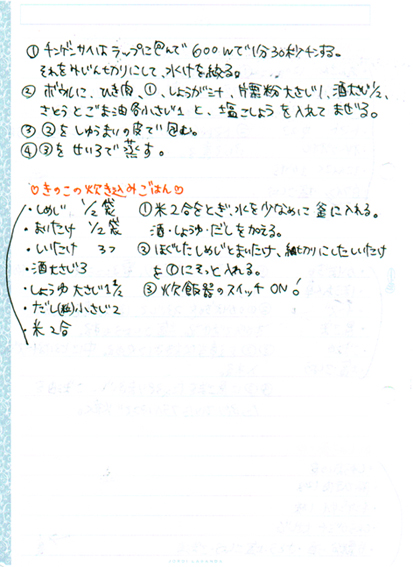 ①チンゲンサイはラップに包んで600Wで1分30秒チンする。
それをみじん切りにして、水けを絞る。
②ボウルに、ひき肉、①、しょうが ミニ、片栗粉大さじ1、酒大さじ1/2、
さとうとごま油各小さじ1と、塩こしょうを入れてまぜる。
③②をしゅうまいの皮で包む。
④③をせいろで蒸す。
♡きのこの炊き込みごはん♡
・しめじ 1/2袋
・まいたけ 1/2袋
・しいたけ 3つ
・酒大さじ3
・しょうゆ 大さじ1 1/2
・だし(粉)小さじ2
・米 2合
①米2合をとぎ、水を少なめに釜に入れる。
酒・しょうゆ・だしをかえる。
②ほぐしたしめじとまいたけ、細切りにしたしいたけ
を①にそっと入れる。
③炊飯器のスイッチON!